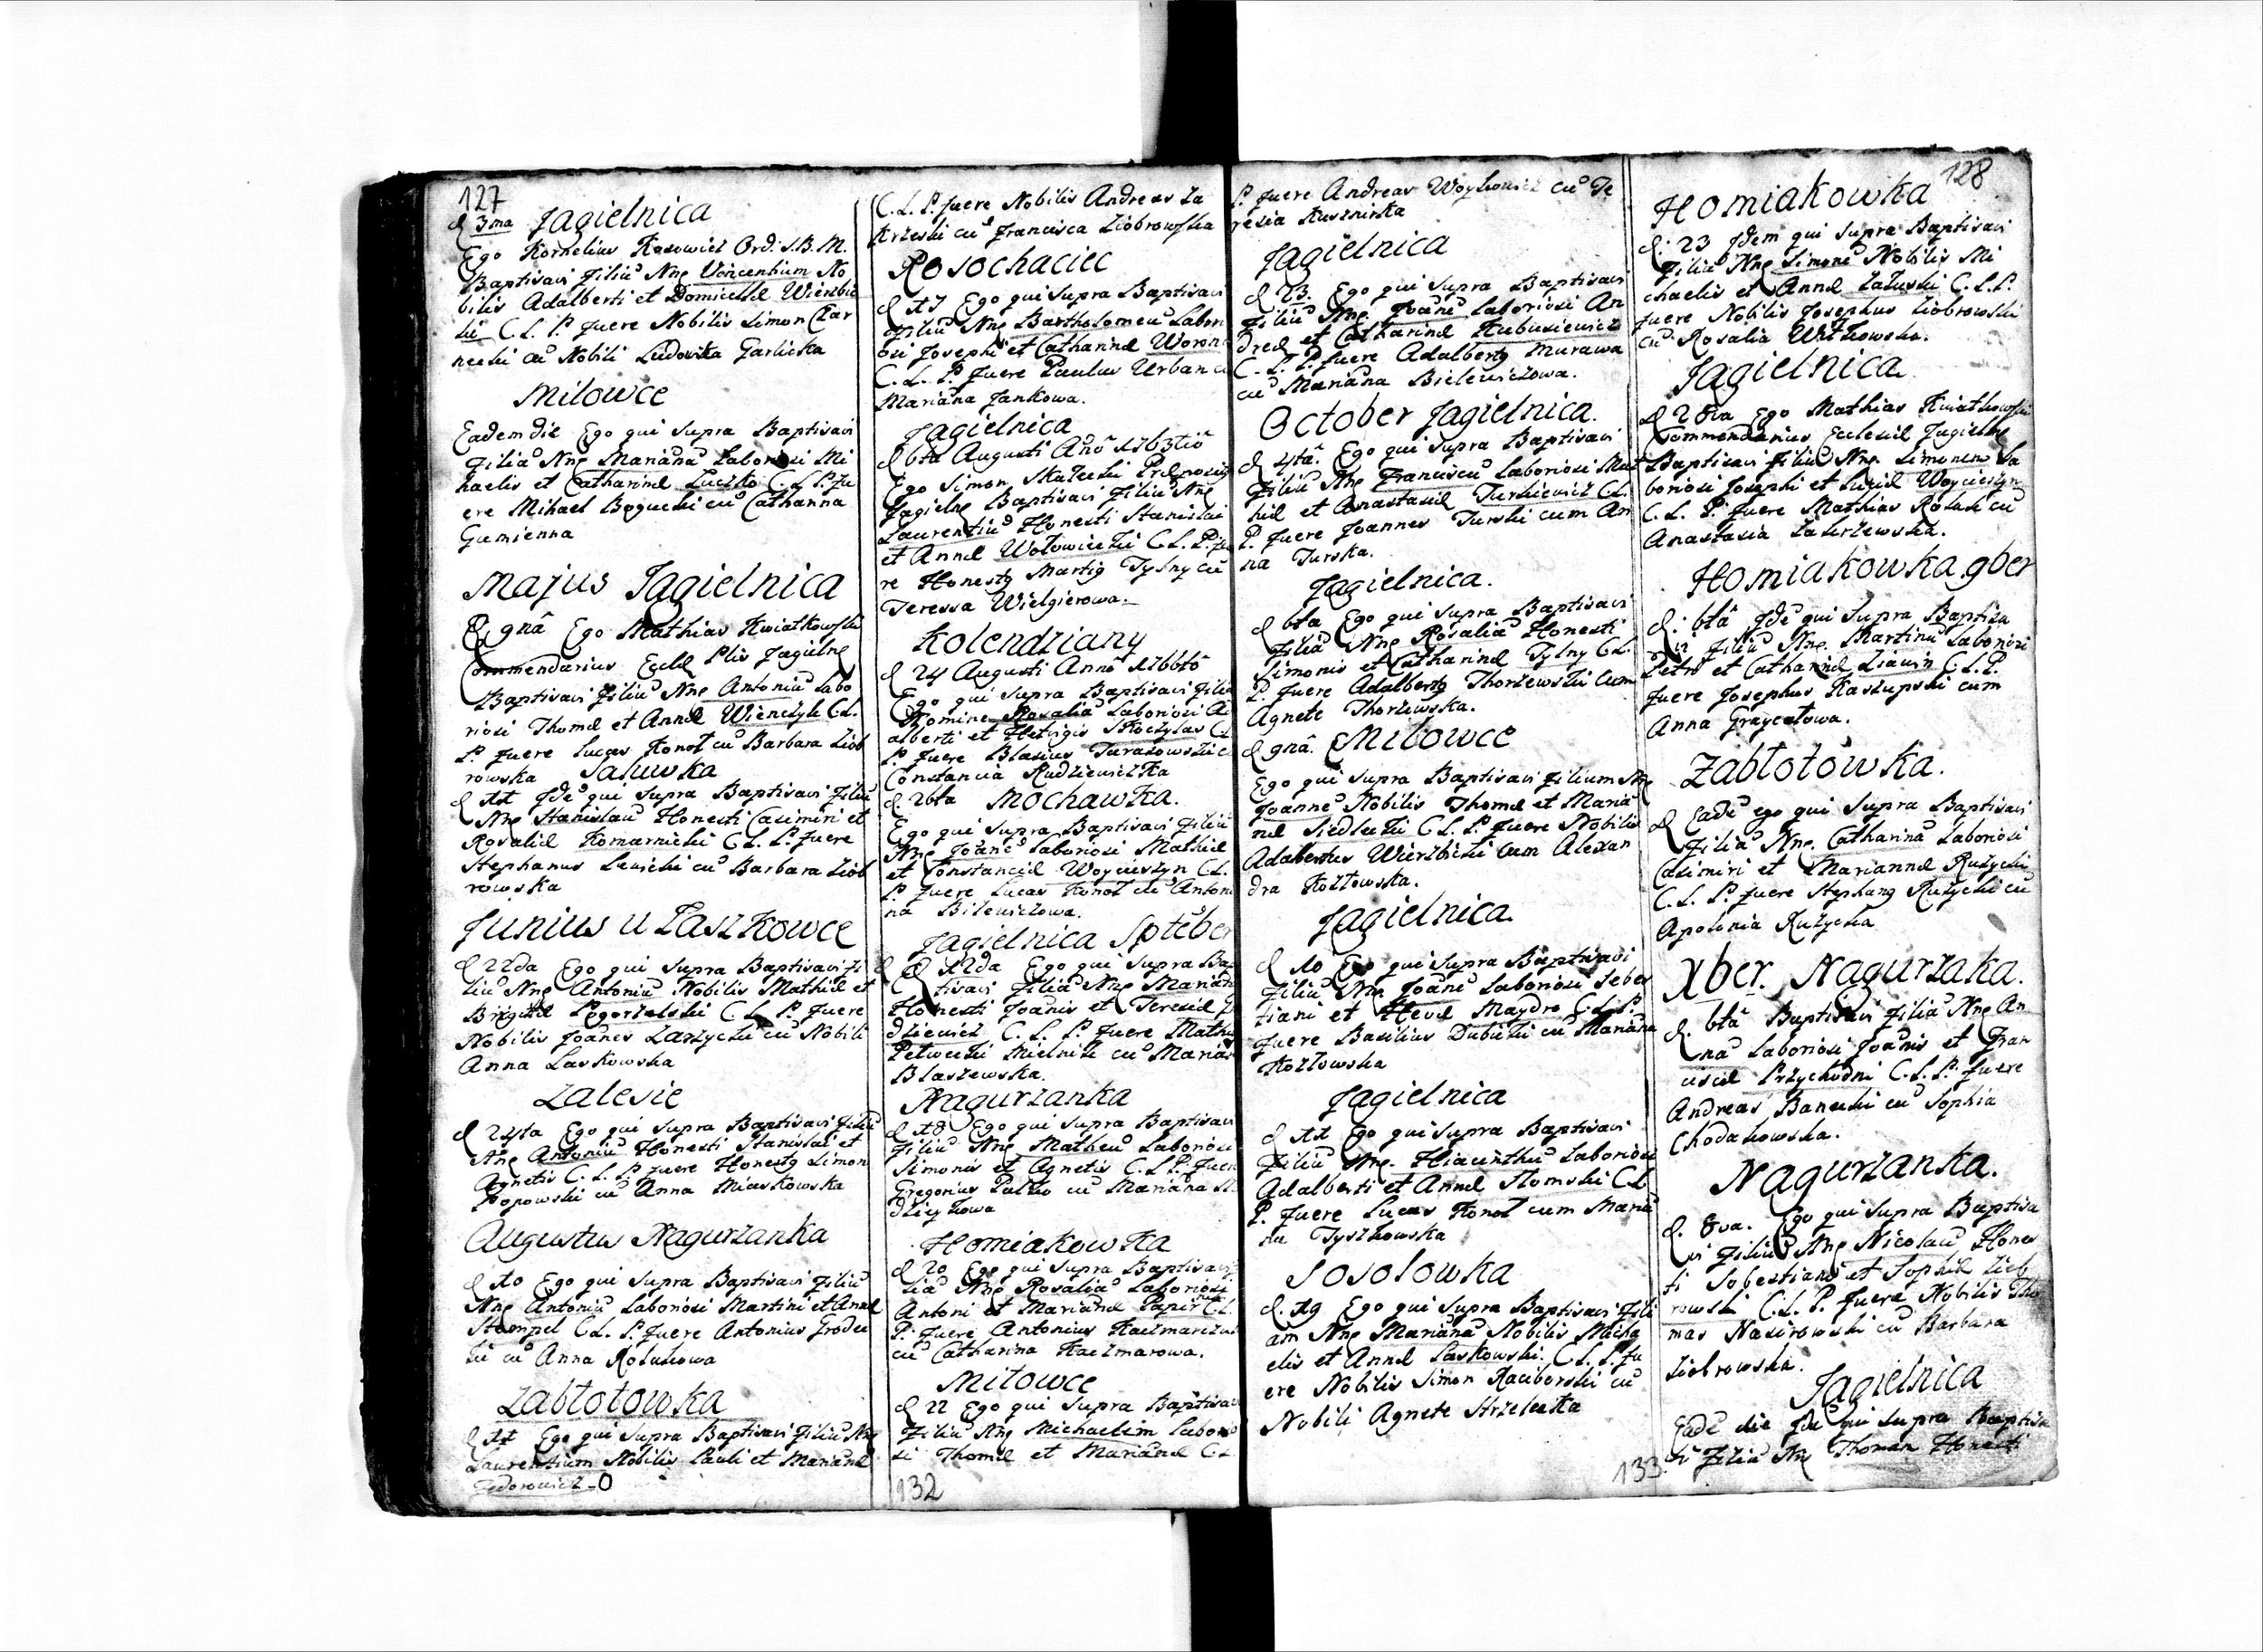 127
d 3ma Jagielnica
Ego Kornelius Kosowicz Ord: S.B.M.
Baptisavi Filiũ Nne Vincentium No
bilis Adalberti et Domicellæ Wierzbic
ki C. L. P. fuere Nobilis Simon Czar
necki cũ Nobili Ludovika Garlicka
Milowce
Eadem die Ego qui supra Baptisavi
Filiã Nne Mariañã Laboriosi Mi
haelis et Catharinæ Luczko C. L. P. fu
ere Mihael Bogucki cũ Catharina
Gumienna
Majus Jagielnica
d 9nâ Ego Mathias Kwiatkowski
Commendarius Ecclæ Plis Jagielne
Baptisavi Filiũ Nne Antoniũ Labo
riosi Thomæ et Annæ Wienczyk C L.
P. fuere Lucas Konot cũ Barbara Ziob
rowska Saluwka
d 11 Jdẽ qui supra Baptisavi Filiũ
Nne Stanislaũ Honesti Casimiri et
Rosaliæ Komarnicki C. L. P. fuere
Stephanus Lewicki cũ Barbara Ziob
rowska
Junius u Laszkowce
d 22da Ego qui supra Baptisavi Fi
liũ Nne Antoniũ Nobilis Mathiæ et
Brigittæ Pogorzelski C. L. P. fuere
Nobilis Joãnes Zarzycki cũ Nobili
Anna Laskowska
Zalesie
d 24ta Ego qui supra Baptisavi Filiũ
Nne Antoniũ Honesti Stanislai et
Agnetis C. L. P. fuere Honestq Simon
Popowski cũ Anna Miaskowska
Augustus Nagurzanka
d 10 Ego qui supra Baptisavi Filiũ
Nne Antoniũ Laboriosi Martini et Annæ
Stempel C L. P. fuere Antonius Grodec
ki cũ Anna Rolukowa
Zabłotowka
d 11 Ego qui supra Baptisavi Filiũ Nne
Laurentium Nobilis Pauli et Mariañæ
Fedorowicz O
C. L. P. fuere Nobilis Andreas Za
krzeski cũ Francisca Ziobrowska
Rosochaciec
d 17 Ego qui supra Baptisavi
Filiũ Nne Bartholomeũ Labori
osi Josephi et Catharinæ Woron
C. L. P. fuere Paulus Urban cũ
Mariana Jankowa.
Jagielnica
d 6ta Augusti Añô 1763tiô
Ego Simon Skalecki Præpositq
Jagielne Baptisavi Filiũ Nne
Laurentiũ Honesti Stanislai
et Annæ Wołowiecki C. L. P. fue
re Honestq Martiq Tylny cũ
Teressa Wielgierowa.
Kolendziany
d 24 Augusti Annô 1766tô
Ego qui supra Baptisavi Filiã
Nomine Rosaliã Laboriosi A
alberti et Hedvigis Skoczylas C L
P. fuere Blasius Turazowski c
Constancia Rudziewiczka
d. 26ta Mochawka.
Ego qui supra Baptisavi Filiũ
Nne Joãnẽ Laboriosi Mathiæ
et Constanciæ Woycieszyn C L.
P. fuere Lucas Konot cũ Antoni
na Bilewiczowa.
Jagielnica Sptẽber
d 12da Ego qui supra Bap
tisavi Filiã Nne Marian
Honesti Joãnis et Teresiæ
dziewicz C. L. P. fuere Mathias
Petwecki Mielnik cũ Marian
Blaszewska.
Nagurzanka
d 18 Ego qui supra Baptisavi
Filiũ Nne Matheũ Laboriosi
Simonis et Agnetis C. L. P. fuere
Gregorius Palko cũ Mariana
dzieykowa
Homiakowka
d 20 Ego qui supra Baptisavi
liã Nne Rosaliã Laboriosi
Antoni et Mariañæ Papir C L.
P. fuere Antonius Kaczmarczuk
cũ Catharina Kaczmarowa.
Miłowce
d 22 Ego qui supra Baptisavi
Filiũ Nne Michaelem Laborio
si Thomæ et Mariañæ C L
132
P. fuere Andreas Woykowicz cũ Te
resia Kusznirka
Jagielnica
d 23. Ego qui supra Baptisavi
Filiũ Nne Joãnẽ Laboriosi An
dreæ et Catharinæ Kubusiewicz
C. L. P. fuere Adalbertq Murawa
cũ Mariana Bielewiczowa.
October Jagielnica.
d 4tâ. Ego qui supra Baptisavi
Filiũ Nne Franciscũ Laboriosi Mat
hiæ et Anastasiæ Turkiewicz C L.
P. fuere Joannes Turski cum An
na Turska.
Jagielnica.
d 6ta Ego qui supra Baptisavi
Filiã Nne Rosaliã Honesti
Simonis et Catharinæ Tylny C L.
P. fuere Adalbertq Thorzewski Cum
Agnete Thorzewska.
d 9nâ. Miłowce
Ego qui supra Baptisavi Filium Nne
Joannẽ Nobilis Thomæ et Maria
næ Siedlecki C L. P. fuere Nobilis
Adalbertus Wierzbicki cum Alexan
dra Kozłowska.
Jagielnica.
d 10 Ego qui supra Baptisavi
Filiũ Nne Joãnẽ Laboriosi Sebes
tiani et Hevæ Maydro C. L. P.
fuere Basilius Dubicki cũ Mariana
Kozłowska
Jagielnica
d 11 Ego qui supra Baptisavi
Filiũ Nne. Hiacinthũ Laboriosi
Adalberti et Annæ Slomski C L
P. fuere Lucas Konot cum Maria
na Tyszkowska
Sosolowka
d. 19 Ego qui supra Baptisavi Fili
am Nne Mariañã Nobilis Micha
elis et Annæ Laskowski. C. L. P. fu
ere Nobilis Simon Raciborski cũ
Nobili Agnete Strzelecka
128
Homiakowka
d. 23 Jdem qui supra Baptisavi
Filiũ Nne Simonẽ Nobilis Mi
chaelis et Annæ Załuski C. L. P.
fuere Nobilis Josephus Ziobrowski
cũ Rosalia Witkowska.
Jagielnica.
d 28va Ego Mathias Kwiatkowski
Commendarius Ecclesiæ Jagielne
Baptisavi Filiũ Nne Simonem La
boriosi Josephi et Luciæ Woycieszyn
C. L. P. fuere Mathias Rolak cũ
Anastasia Zakrzewska.
Homiakowka 9ber
d. 6tâ Jdẽ qui supra Baptisa
vi Filiũ Nne. Martinũ Laboriosi
Petri et Catharinæ Ziawin C. L. P.
fuere Josephus Kaszupski cum
Anna Graycatowa.
Zabłotowka.
d Eadẽ ego qui supra Baptisavi
Filiã Nne. Catharinã Laboriosi
Casimiri et Mariannæ Ruzycki
C. L. P. fuere Stephanq Ruzycki cũ
Apolonia Ruzycka
Xber. Nagurzaka.
d. 6tâ Baptisavi Filiã Nne An
nã Laboriosi Joãnis et Fran
ciscæ Przychodni C. L. P. fuere
Andreas Banecki cũ Sophia
Chodakowska.
Nagurzanka.
d. 8va. Ego qui supra Baptisa
vi Filiũ Nne Nicolaũ Hones
ti Sobestiani et Sophiæ Zieb
rowski C. L. P. fuere Nobilis Tho
mas Nasirowski cũ Barbara
Ziobrowska.
Jagielnica
Eadẽ die Jdẽ qui supra Baptisa
vi Filiũ Nne Thoman Honesti
133